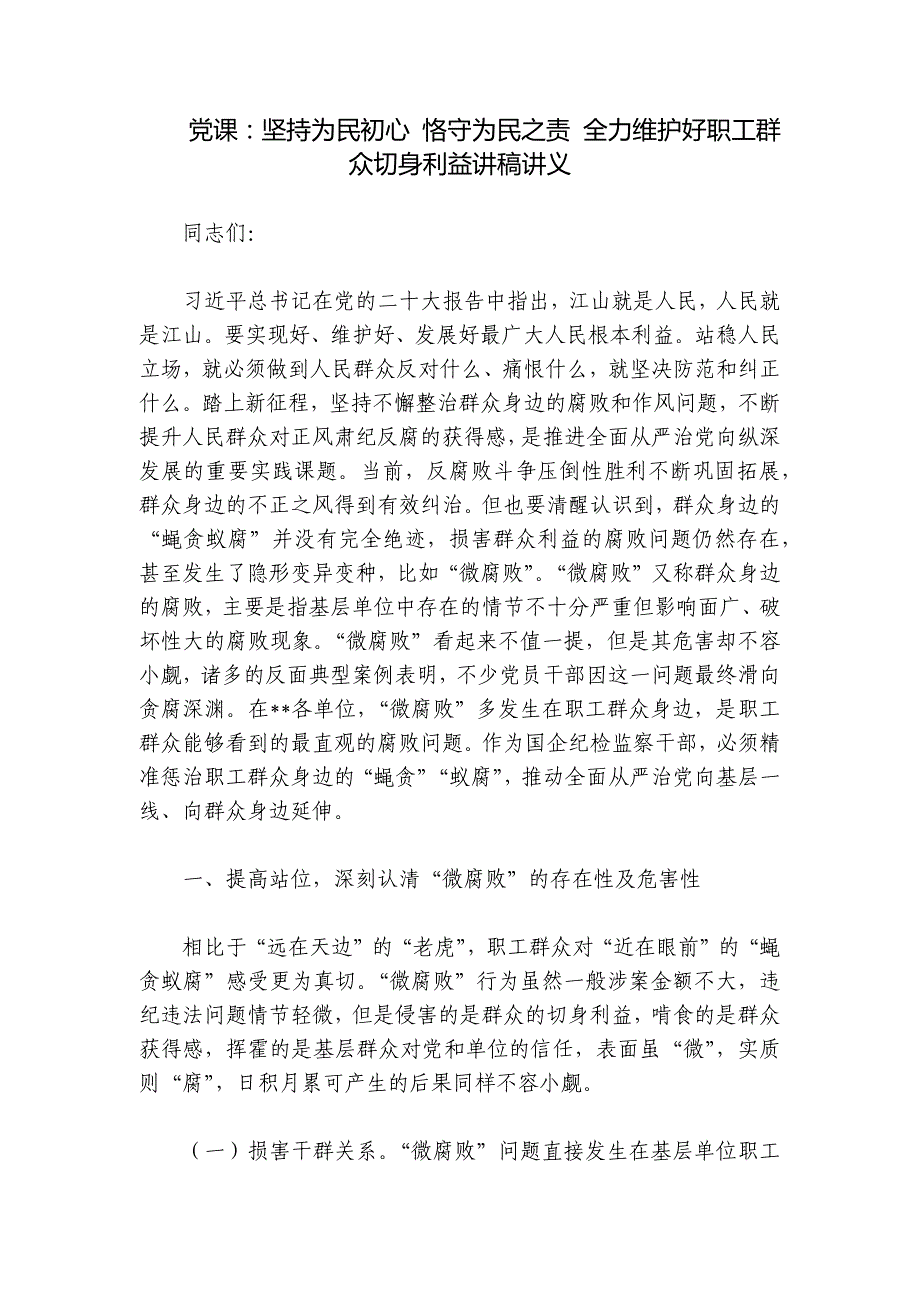 党课：坚持为民初心 恪守为民之责 全力维护好职工群
众切身利益讲稿讲义
同志们：
习近平总书记在党的二十大报告中指出，江山就是人民，人民就
是江山。要实现好、维护好、发展好最广大人民根本利益。站稳人民
立场，就必须做到人民群众反对什么、痛恨什么，就坚决防范和纠正
什么。踏上新征程，坚持不懈整治群众身边的腐败和作风问题，不断
提升人民群众对正风肃纪反腐的获得感，是推进全面从严治党向纵深
发展的重要实践课题。当前，反腐败斗争压倒性胜利不断巩固拓展，
群众身边的不正之风得到有效纠治。但也要清醒认识到，群众身边的
“蝇贪蚁腐”并没有完全绝迹，损害群众利益的腐败问题仍然存在，
甚至发生了隐形变异变种，比如“微腐败”。“微腐败”又称群众身边
的腐败，主要是指基层单位中存在的情节不十分严重但影响面广、破
坏性大的腐败现象。“微腐败”看起来不值一提，但是其危害却不容
小觑，诸多的反面典型案例表明，不少党员干部因这一问题最终滑向
贪腐深渊。在**各单位，“微腐败”多发生在职工群众身边，是职工
群众能够看到的最直观的腐败问题。作为国企纪检监察干部，必须精
准惩治职工群众身边的“蝇贪”“蚁腐”，推动全面从严治党向基层一
线、向群众身边延伸。
一、提高站位，深刻认清“微腐败”的存在性及危害性
相比于“远在天边”的“老虎”，职工群众对“近在眼前”的“蝇
贪蚁腐”感受更为真切。“微腐败”行为虽然一般涉案金额不大，违
纪违法问题情节轻微，但是侵害的是群众的切身利益，啃食的是群众
获得感，挥霍的是基层群众对党和单位的信任，表面虽“微”，实质
则“腐”，日积月累可产生的后果同样不容小觑。
（一）损害干群关系。“微腐败”问题直接发生在基层单位职工